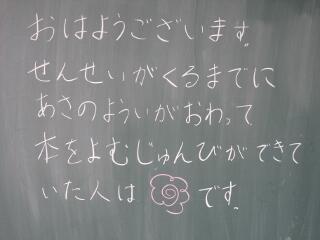 おはようございます。
せんせいがくるまでに
あさのよういがおわって
本をよむじゅんびができて
いた人は です。